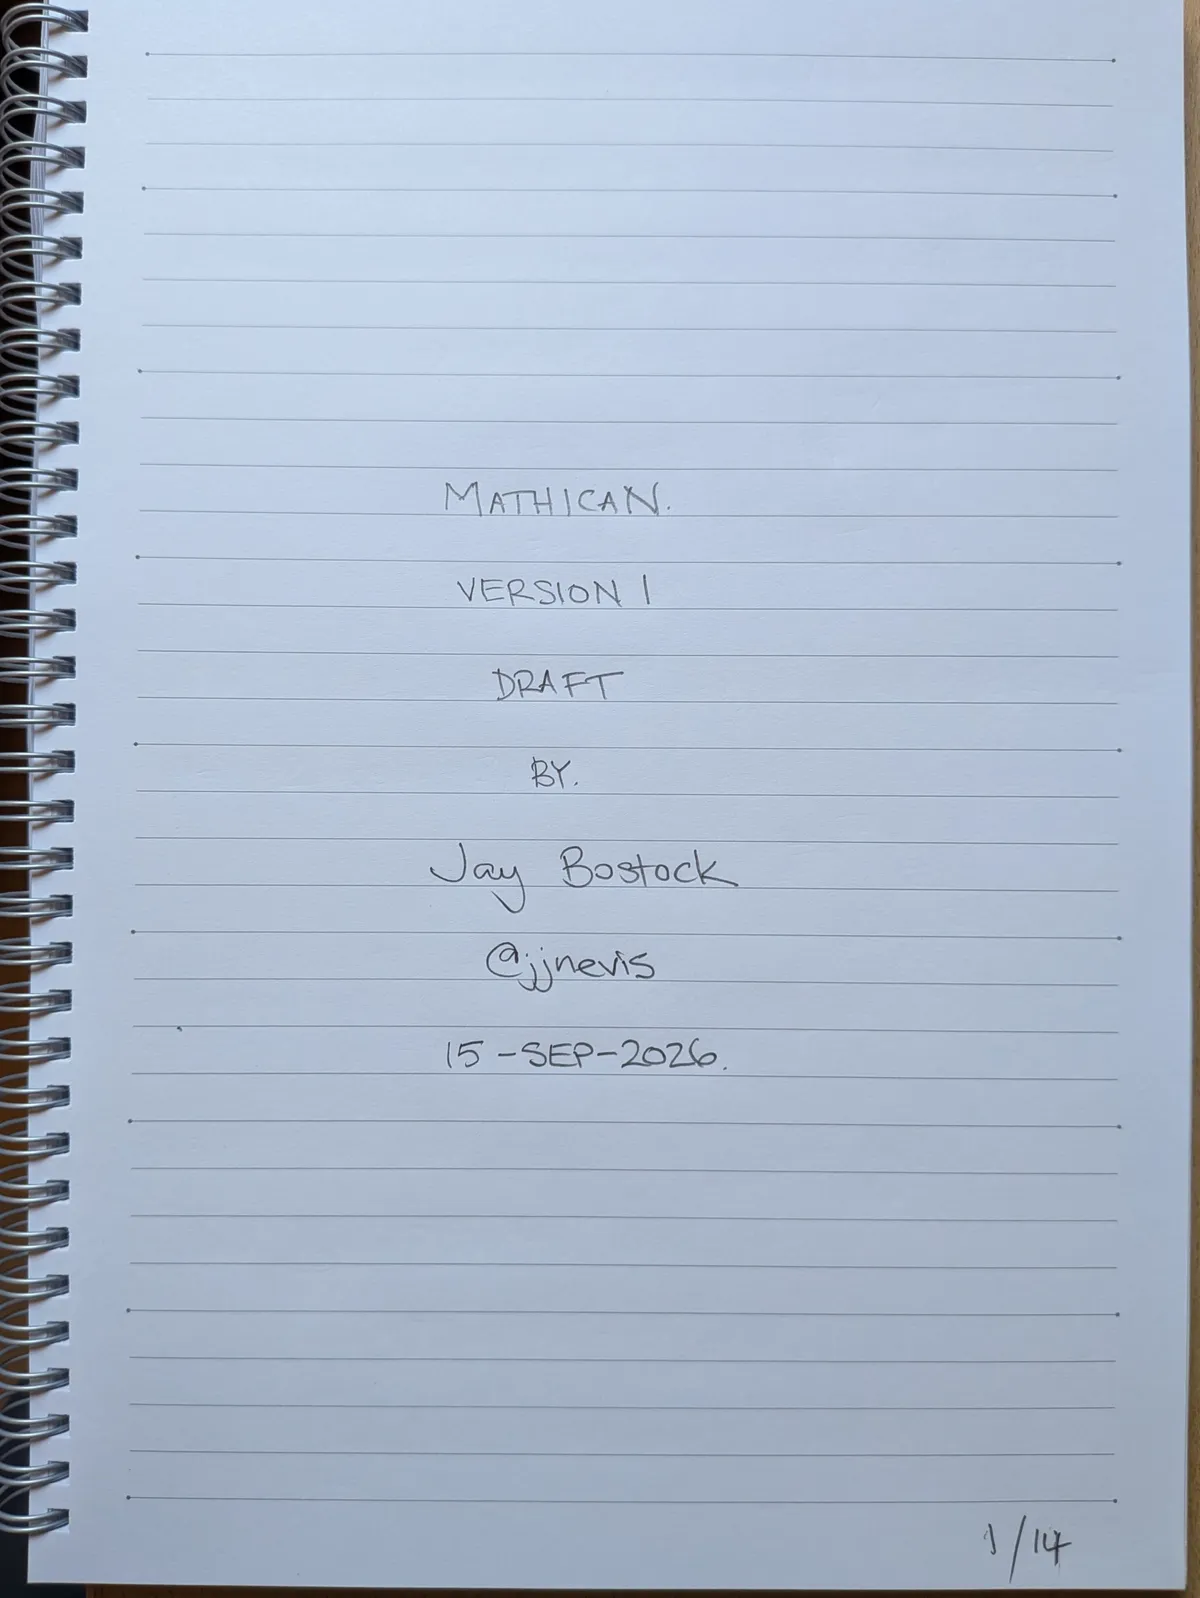 MATHICAN.
VERSION 1
DRAFT
BY.
Jay Bostock
@jjnevis
15-SEP-2026.
1/14